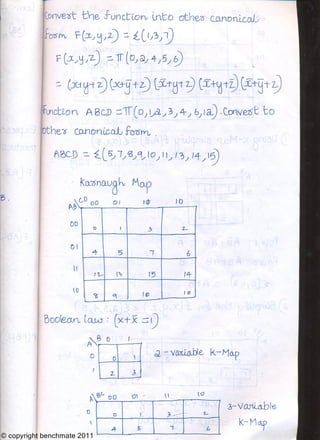 Convert the function into other canonical
form F(x,y,z) = Σ(1,3,7)
F(x,y,z) = π(0,2,4,5,6)
= (x+y+z)(x+ȳ+z)(x̄+y+z)(x̄+y+z̄)(x̄+ȳ+z)
function ABCD = π(0,1,2,3,4,6,12). Convert to
other canonical form.
ABCD = Σ(5,7,8,9,10,11,13,14,15)
Karnaugh Map
AB CD 00 01 10 10
00 0 1 3 2
01 4 5 7 6
11 12 13 15 14
10 8 9 10 10
Boolean Law : (x+x̄ =1)
A B 0 1
0 0 1 2-variable k-Map
1 2 3
A BC 00 01 11 10
0 0 1 3 2 3-variable
1 4 5 7 6 k-Map
© copyright benchmate 2011